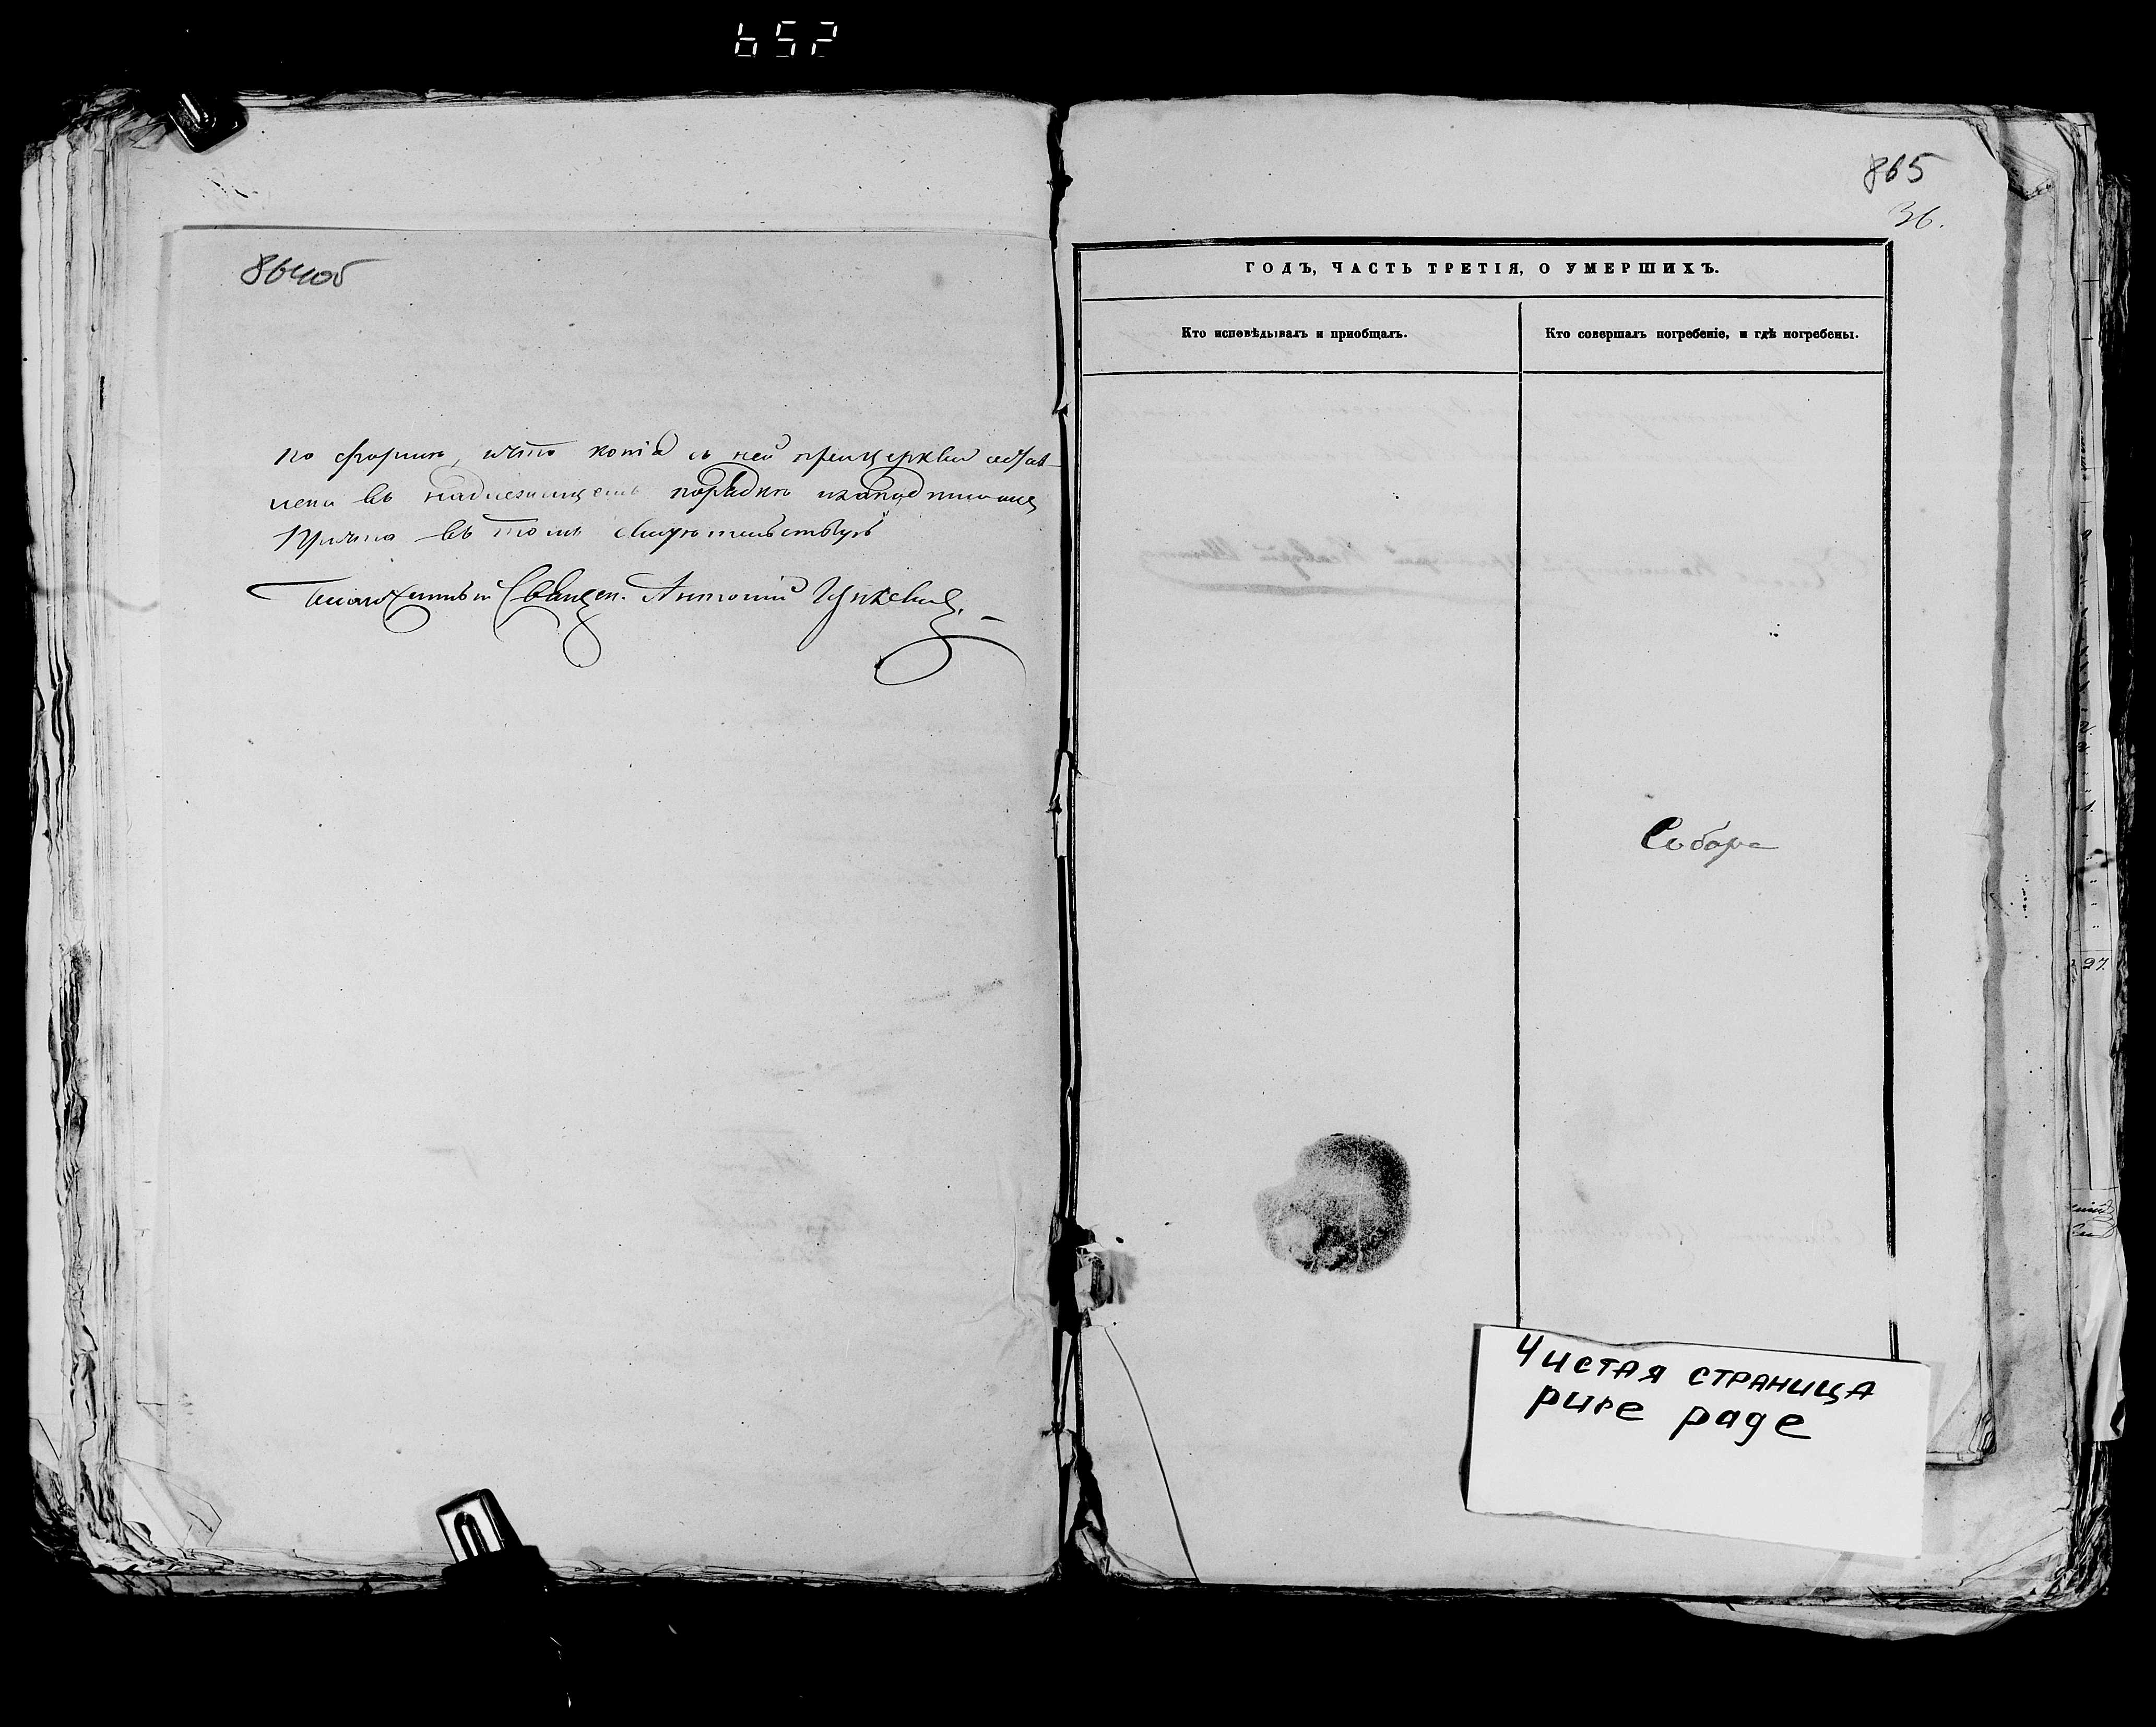 652
864об
по формѣ, и что копія съ ней при церкви остав-
лена въ надлежащемъ порядкѣ и за подписомъ
Причта въ томъ свидѣтельствую
Благочинный Священ. Антоній
865
36.
ГОДЪ, ЧАСТЬ ТРЕТІЯ, О УМЕРШИХЪ.
Кто исповѣдывалъ и пріобщалъ.
Кто совершалъ погребеніе, и гдѣ погребены.
Собора
27.
Чистая страница
pure page